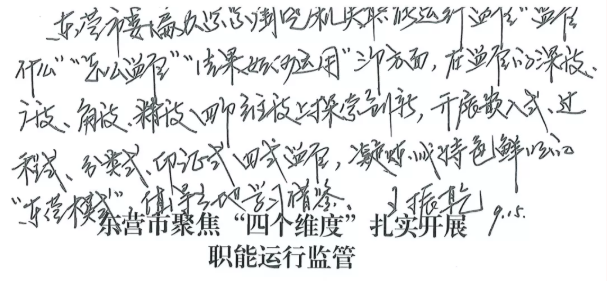 东营市委编办紧紧围绕机关职能运行监管“监管
什么”“怎么监管”“结果如何运用”三方面，在监管的深度、
广度、角度、精度四个维度上探索创新，开展嵌入式、过
程式、分类式、印证式四式监管，凝炼成特色鲜明的
“东营模式”，值得各地学习借鉴。 王振乾 9.15.
东营市聚焦“四个维度”扎实开展
职能运行监管